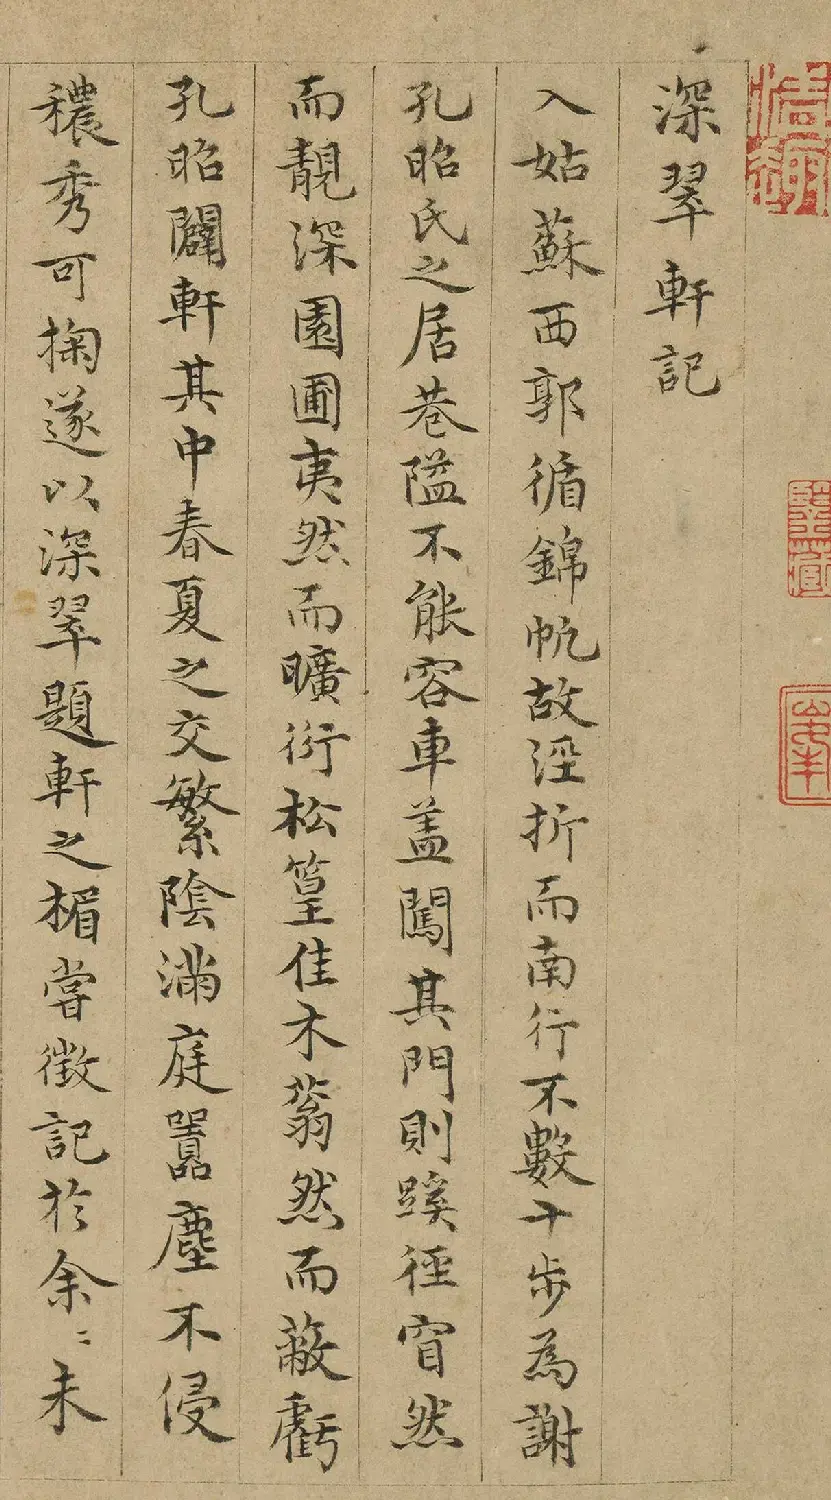 深翠軒記
入姑蘇西郭循錦帆故涇折而南行不數十步為謝
孔昭氏之居巷隘不能容車蓋闖其門則蹊徑窅然
而靚深園圃夷然而曠衍松篁佳木蓊然而蔽虧
孔昭闢軒其中春夏之交繁陰滿庭囂塵不侵
穠秀可掬遂以深翠題軒之楣嘗徵記於余〻未
鑒藏